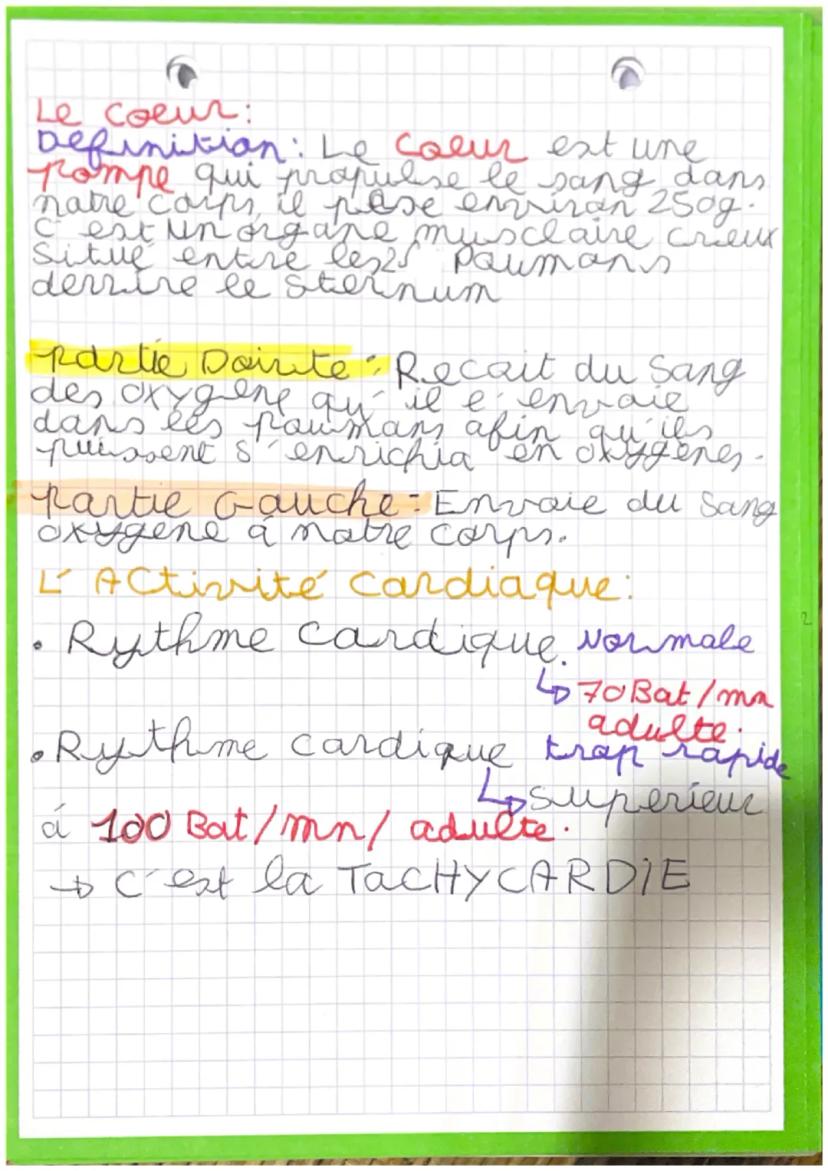 Le coeur:
Definition: Le coeur est une
pompe qui propulse le sang dans
notre corps, il pèse environ 250g.
C'est un organe musclaire creux
Situé entre les 2 Poumons
derrire le sternum
partie Doirte: Recoit du Sang
des oxygene qu'il e envoie
dans les poumons afin qu'ils
puissent s'enrichia en oxygènes.
partie Gauche: Envoie du Sang
oxygene à notre corps.
L'Activité cardiaque:
• Rythme cardique Normale
↳ 70 Bat/mn
adulte.
• Rythme cardique trop rapide
↳ superieur
á 100 Bat/mn/ adulte.
→ C'est la TACHYCARDIE
2